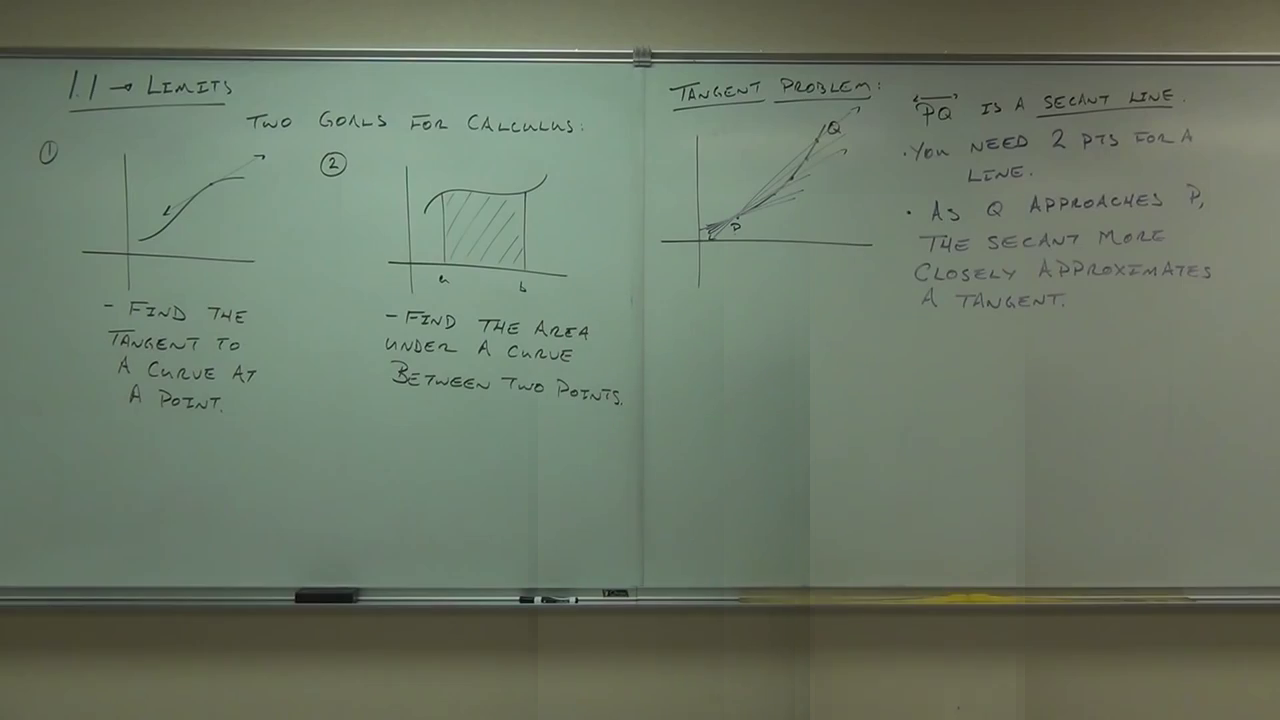 1.1 → LIMITS
TWO GOALS FOR CALCULUS:
①
②
a
b
- FIND THE
TANGENT TO
A CURVE AT
A POINT.
- FIND THE AREA
UNDER A CURVE
BETWEEN TWO POINTS.
TANGENT PROBLEM:
Q
P
PQ IS A SECANT LINE.
• YOU NEED 2 PTS FOR A
LINE.
• AS Q APPROACHES P,
THE SECANT MORE
CLOSELY APPROXIMATES
A TANGENT.